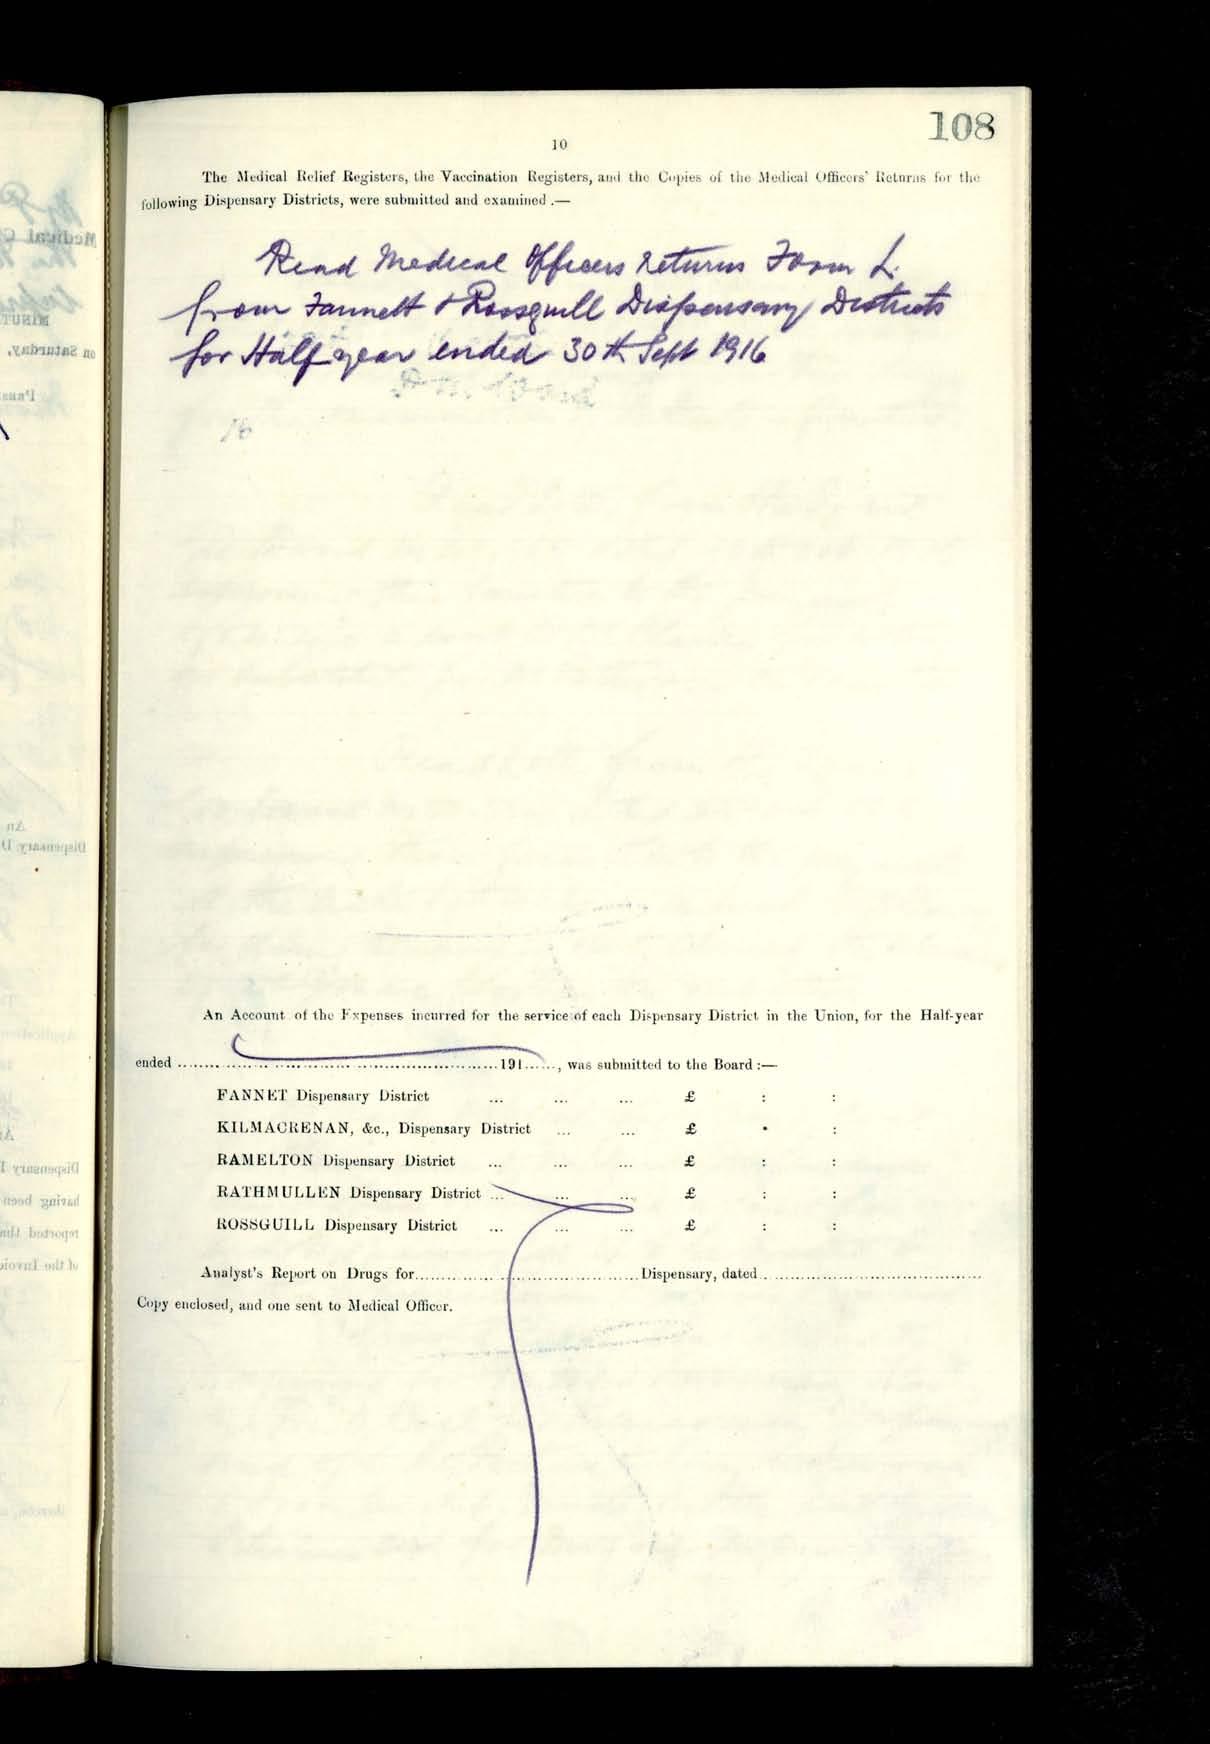 108
10
The Medical Relief Registers, the Vaccination Registers, and the Copies of the Medical Officers' Returns for the
following Dispensary Districts, were submitted and examined .—
Read Medical Officers Returns Form L.
from Fannett & Rossguill Dispensary Districts
for Half year ended 30th Sept 1916
An Account of the Expenses incurred for the service of each Dispensary District in the Union, for the Half-year
ended ........................................ 191......, was submitted to the Board :—
FANNET Dispensary District ... ... ... £ : :
KILMACRENAN, &c., Dispensary District ... ... £ : :
RAMELTON Dispensary District ... ... ... £ : :
RATHMULLEN Dispensary District ... ... ... £ : :
ROSSGUILL Dispensary District ... ... ... £ : :
Analyst's Report on Drugs for........................................Dispensary, dated........................................
Copy enclosed, and one sent to Medical Officer.